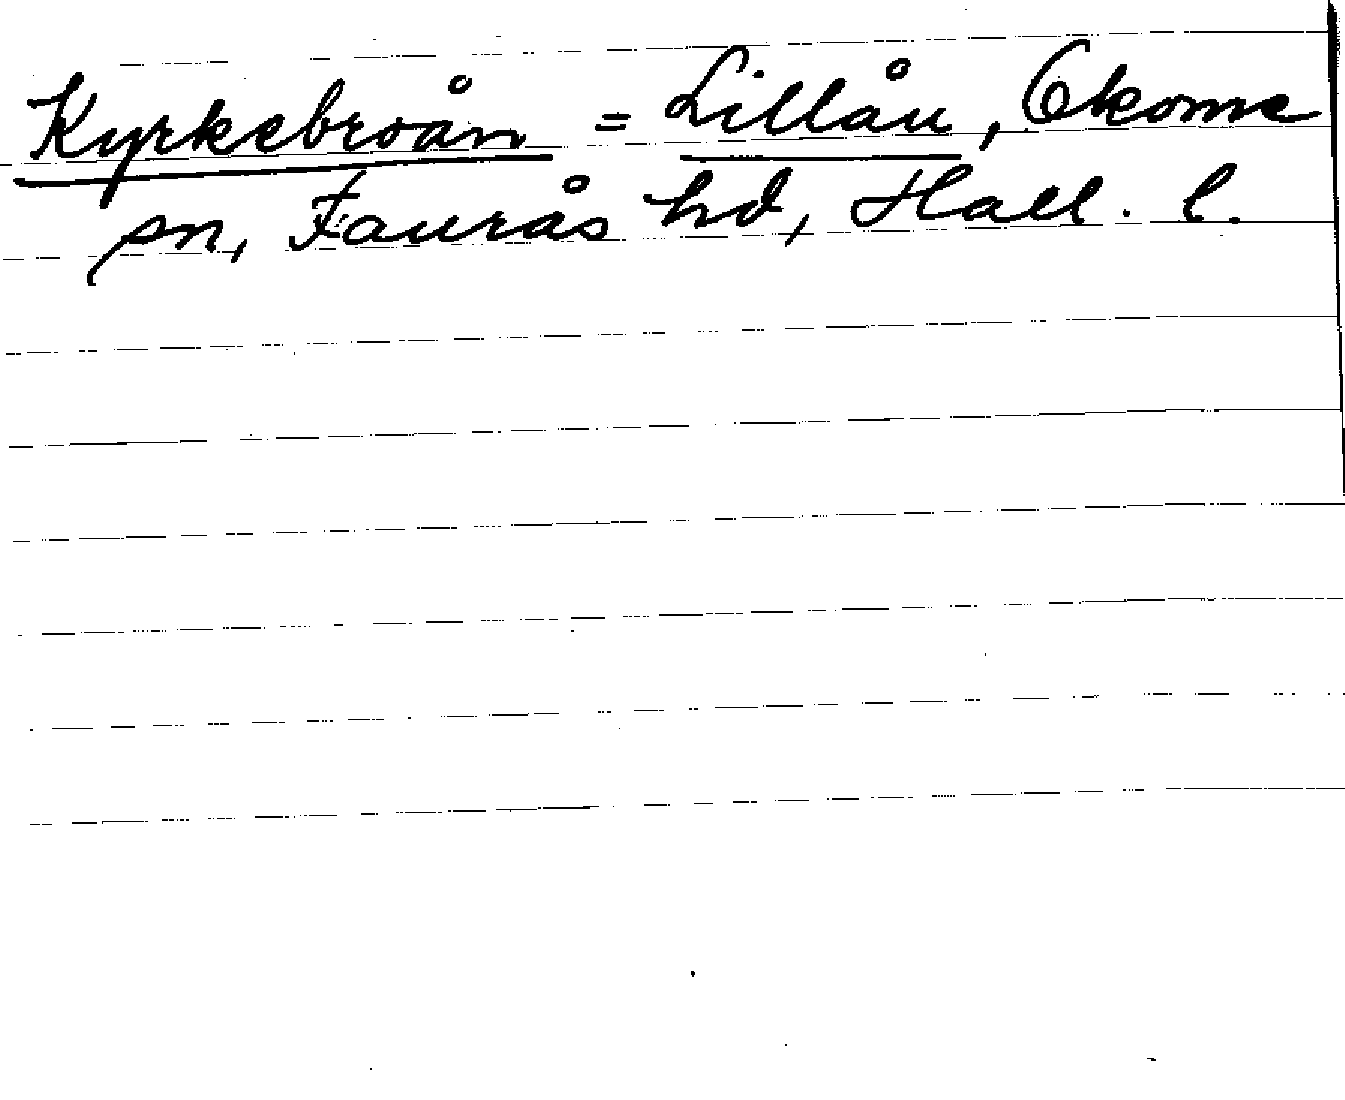 Kyrkebroån = Lillån, Okome
sn, Faurås hd, Hall. l.